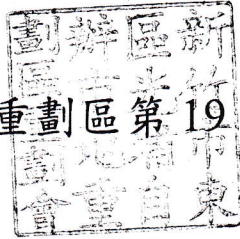 重劃區第 19
新竹市東
區 自
辦 地重
劃區 劃會